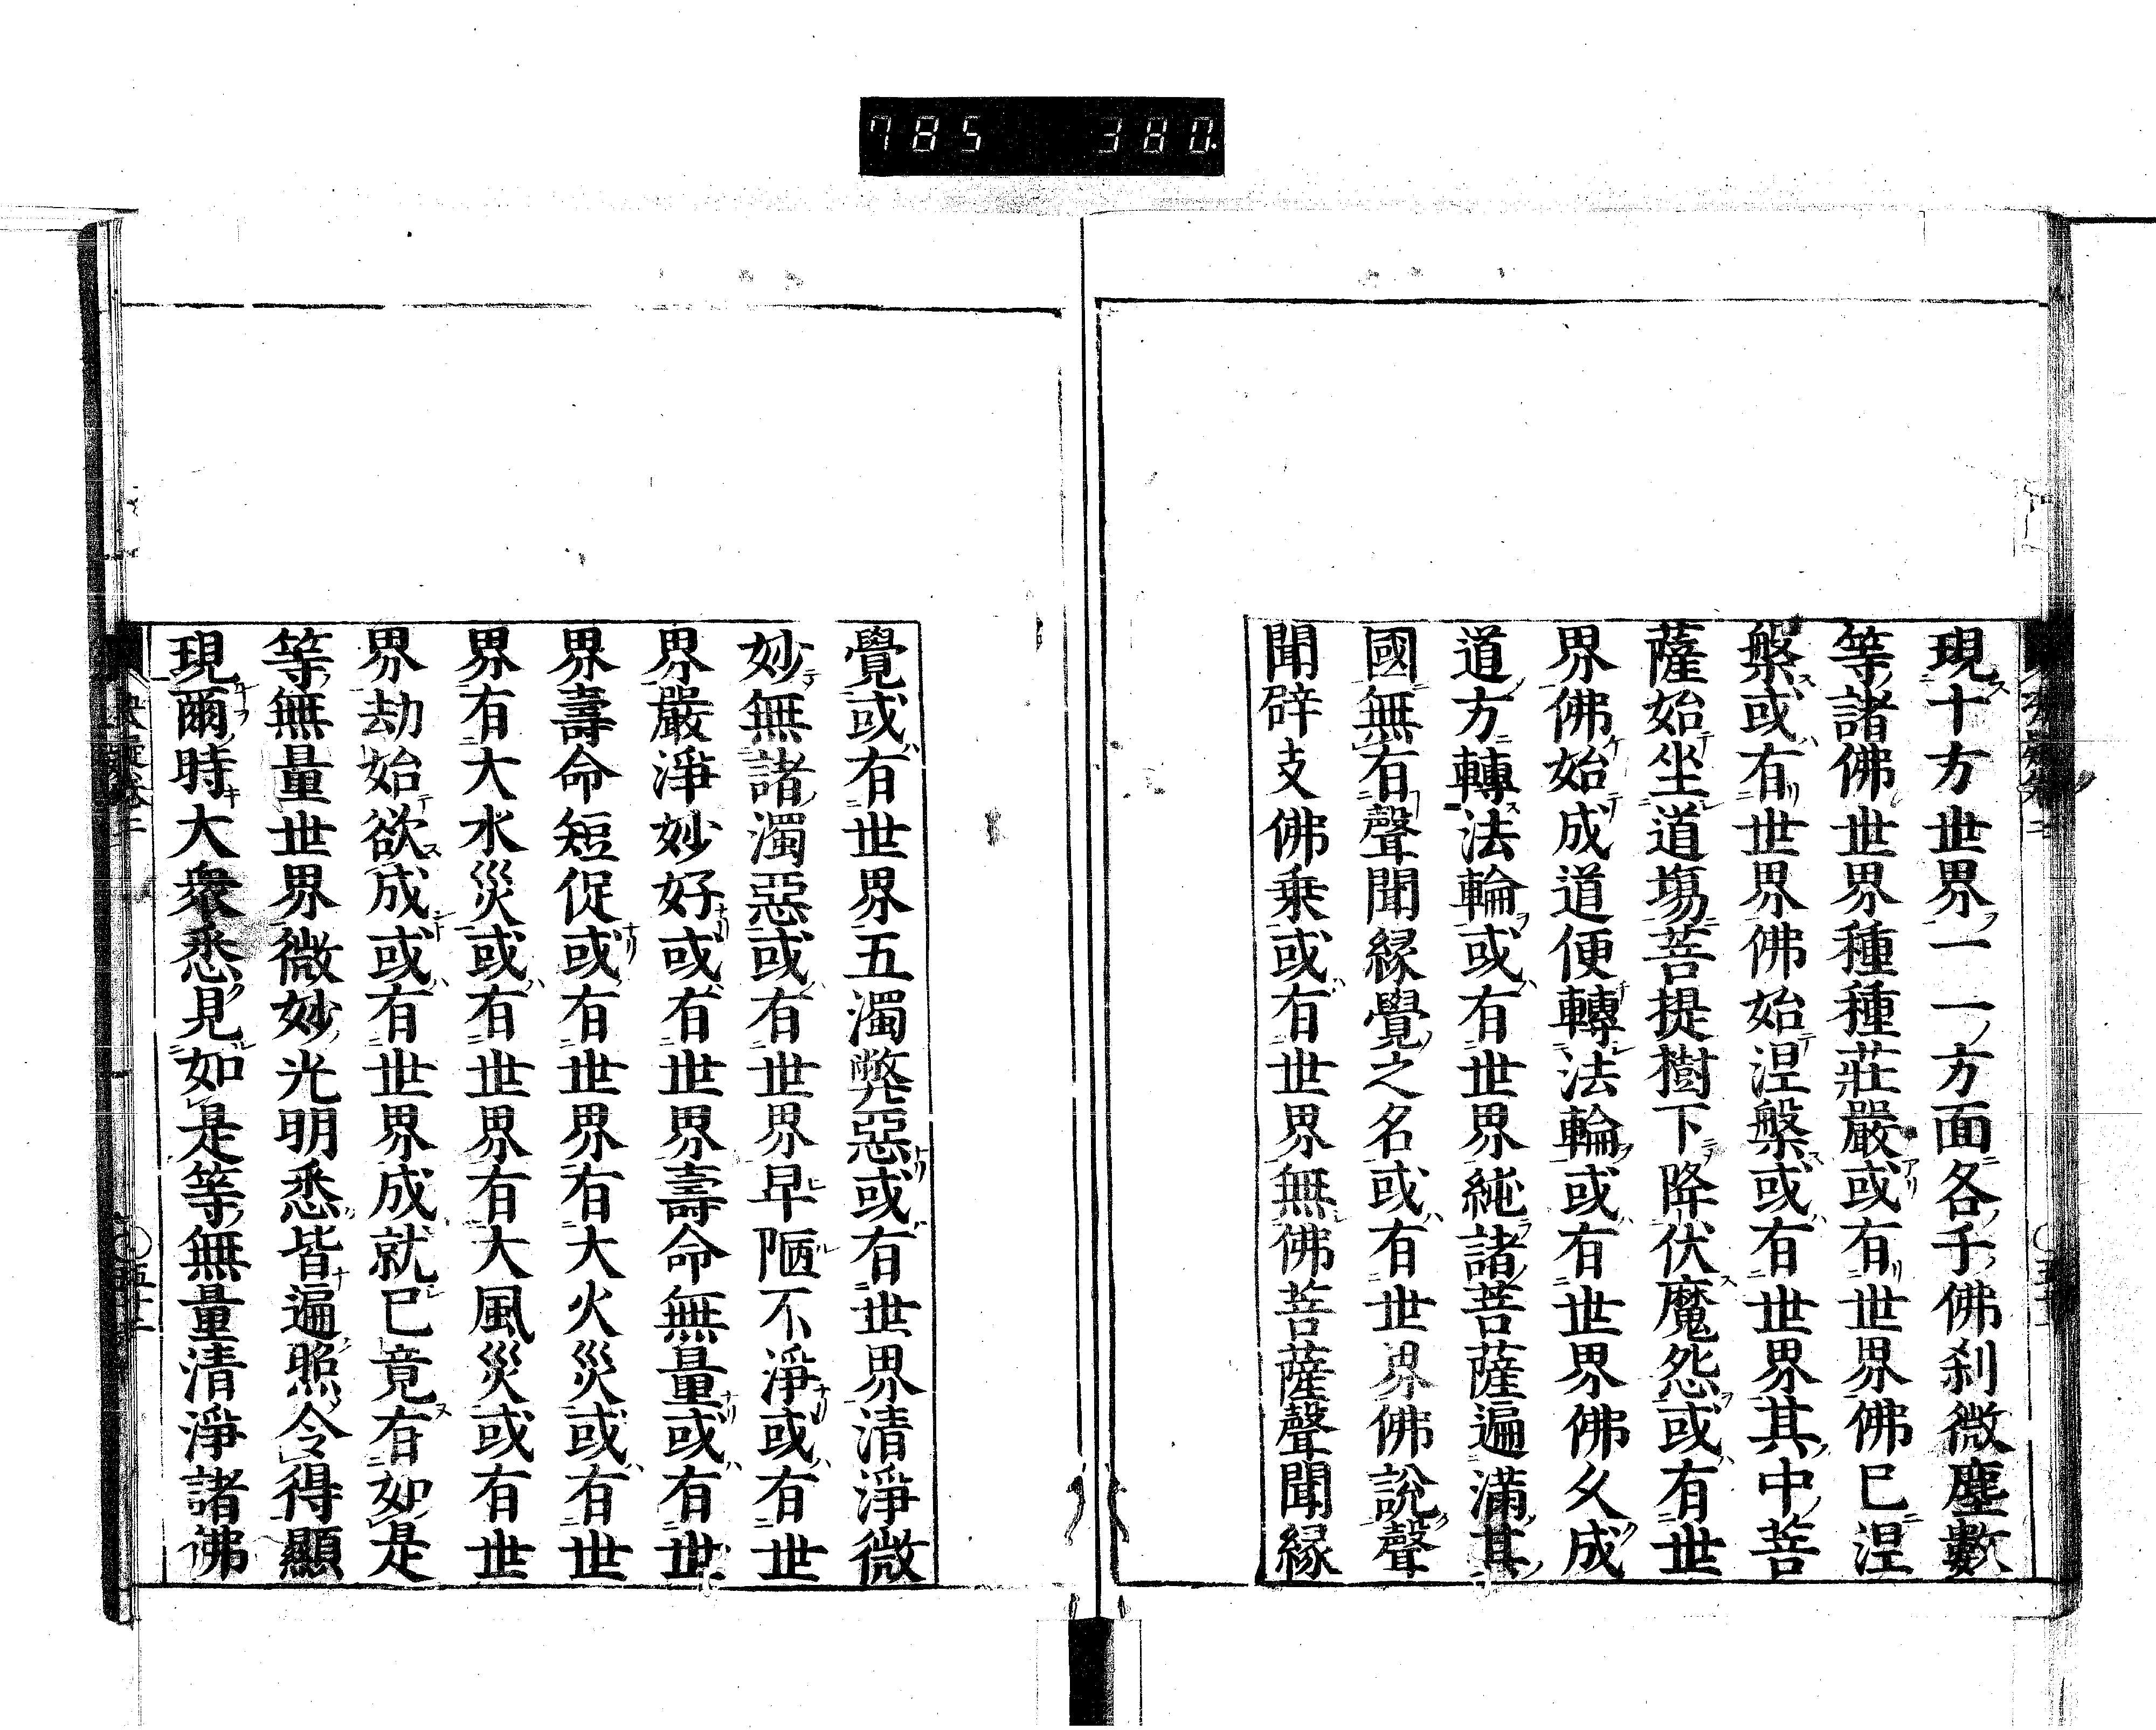 785 380.
現十方世界一一方面各千佛刹微塵數
等諸佛世界種種莊嚴或有世界佛已涅
槃或有世界佛始涅槃或有世界其中菩
薩始坐道場菩提樹下降伏魔怨或有世
界佛始成道便轉法輪或有世界佛久成
道方轉法輪或有世界純諸菩薩遍滿其
國無有聲聞縁覺之名或有世界佛説聲
聞辟支佛乗或有世界無佛菩薩聲聞縁
覺或有世界五濁弊惡或有世界清淨微
妙無諸濁惡或有世界卑陋不淨或有世
界嚴淨妙好或有世界壽命無量或有世
界壽命短促或有世界有大火災或有世
界有大水災或有世界有大風災或有世
界劫始欲成或有世界成就已竟有如是
等無量世界微妙光明悉皆遍照令得顯
現爾時大衆悉見如是等無量清淨諸佛